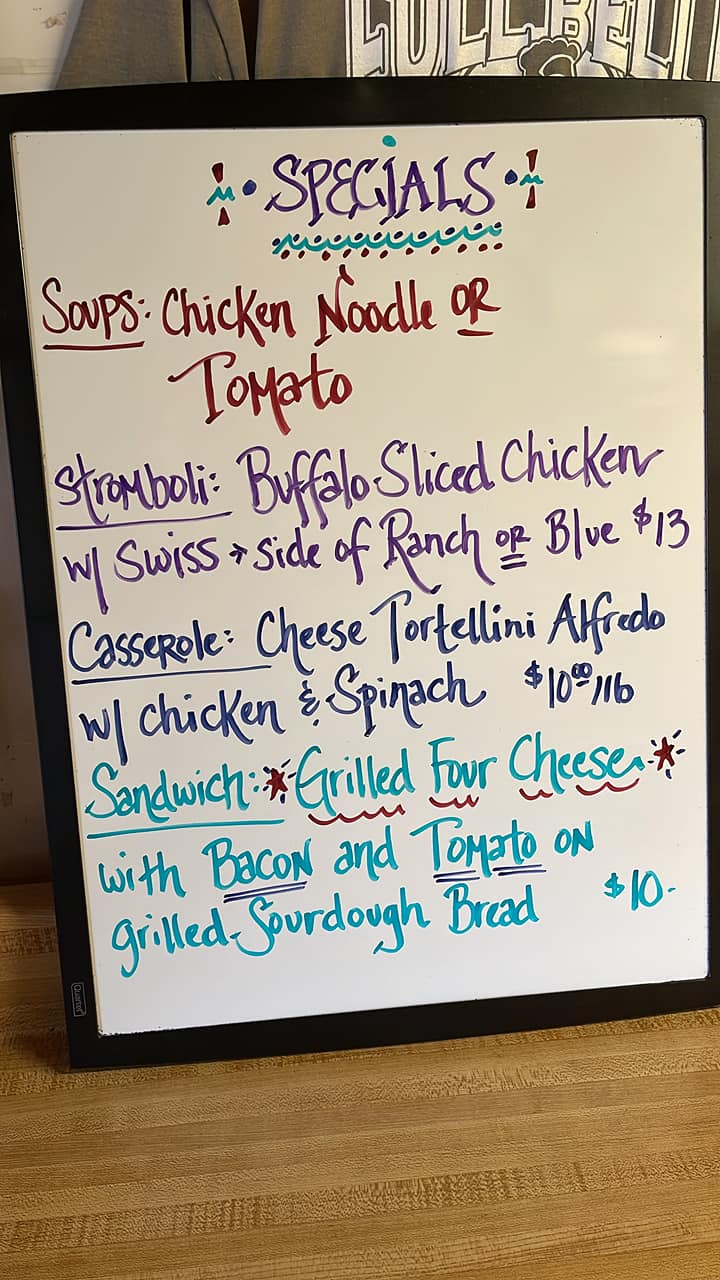 FULL BELL
SPECIALS
Soups: Chicken Noodle OR
Tomato
Stromboli: Buffalo Sliced Chicken
w/ Swiss → side of Ranch OR Blue $13
Casserole: Cheese Tortellini Alfredo
w/ chicken & Spinach $10⁰⁰/lb
Sandwich: Grilled Four Cheese
with Bacon and Tomato on
grilled Sourdough Bread $10-
Quartet